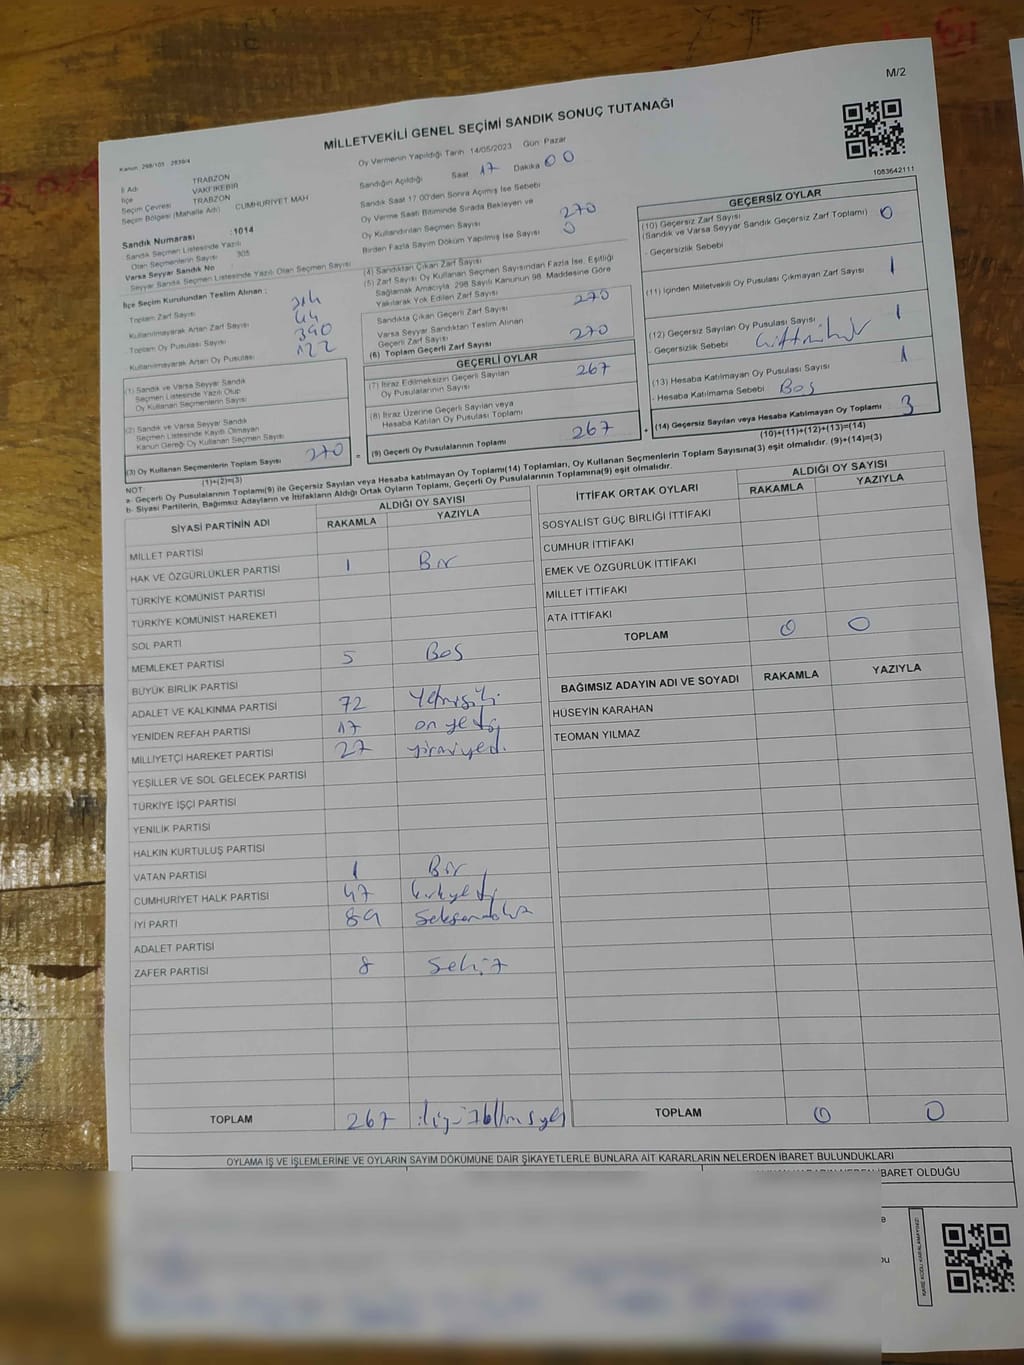 M/2
MİLLETVEKİLİ GENEL SEÇİMİ SANDIK SONUÇ TUTANAĞI
Kanun: 298/103 - 2839/4
Oy Vermenin Yapıldığı Tarih 14/05/2023 Gün: Pazar
Sandığın Açıldığı Saat 17 Dakika 00
1083642111
İl Adı TRABZON
İlçe VAKFIKEBİR
Seçim Çevresi TRABZON
Seçim Bölgesi (Mahalle Adı) CUMHURİYET MAH
Sandık Numarası :1014
Sandık Seçmen Listesinde Yazılı
Olan Seçmenlerin Sayısı 305
Varsa Seyyar Sandık No
Seyyar Sandık Seçmen Listesinde Yazılı Olan Seçmen Sayısı
İlçe Seçim Kurulundan Teslim Alınan :
Toplam Zarf Sayısı
Kullanılmayarak Artan Zarf Sayısı 44
Toplam Oy Pusulası Sayısı 390
Kullanılmayarak Artan Oy Pusulası 122
(1) Sandık ve Varsa Seyyar Sandık
Seçmen Listesinde Yazılı Olup
Oy Kullanan Seçmenlerin Sayısı
(2) Sandık ve Varsa Seyyar Sandık
Seçmen Listesinde Kayıtlı Olmayan
Kanun Gereği Oy Kullanan Seçmen Sayısı
(3) Oy Kullanan Seçmenlerin Toplam Sayısı 270
(1)+(2)=(3)
Sandık Saat 17.00'den Sonra Açılmış İse Sebebi
Oy Verme Saati Bitiminde Sırada Bekleyen ve
Oy Kullandırılan Seçmen Sayısı 270
Birden Fazla Sayım Döküm Yapılmış İse Sayısı 0
(4) Sandıktan Çıkan Zarf Sayısı
(5) Zarf Sayısı Oy Kullanan Seçmen Sayısından Fazla İse, Eşitliği
Sağlamak Amacıyla, 298 Sayılı Kanunun 98. Maddesine Göre
Yakılarak Yok Edilen Zarf Sayısı
Sandıkta Çıkan Geçerli Zarf Sayısı 270
Varsa Seyyar Sandıktan Teslim Alınan
Geçerli Zarf Sayısı
(6) Toplam Geçerli Zarf Sayısı 270
GEÇERLİ OYLAR
(7) İtiraz Edilmeksizin Geçerli Sayılan
Oy Pusulalarının Sayısı 267
(8) İtiraz Üzerine Geçerli Sayılan veya
Hesaba Katılan Oy Pusulası Toplamı
= (9) Geçerli Oy Pusulalarının Toplamı 267
GEÇERSİZ OYLAR
(10) Geçersiz Zarf Sayısı
(Sandık ve Varsa Seyyar Sandık Geçersiz Zarf Toplamı) 0
- Geçersizlik Sebebi
(11) İçinden Milletvekili Oy Pusulası Çıkmayan Zarf Sayısı 1
(12) Geçersiz Sayılan Oy Pusulası Sayısı 1
- Geçersizlik Sebebi
(13) Hesaba Katılmayan Oy Pusulası Sayısı 1
- Hesaba Katılmama Sebebi Boş
+ (14) Geçersiz Sayılan veya Hesaba Katılmayan Oy Toplamı 3
(10)+(11)+(12)+(13)=(14)
NOT:
a- Geçerli Oy Pusulalarının Toplamı(9) ile Geçersiz Sayılan veya Hesaba katılmayan Oy Toplamı(14) Toplamları, Oy Kullanan Seçmenlerin Toplam Sayısına(3) eşit olmalıdır. (9)+(14)=(3)
b- Siyasi Partilerin, Bağımsız Adayların ve İttifakların Aldığı Ortak Oyların Toplamı, Geçerli Oy Pusulalarının Toplamına(9) eşit olmalıdır.
SİYASİ PARTİNİN ADI
ALDIĞI OY SAYISI
RAKAMLA YAZIYLA
MİLLET PARTİSİ
HAK VE ÖZGÜRLÜKLER PARTİSİ 1 Bir
TÜRKİYE KOMÜNİST PARTİSİ
TÜRKİYE KOMÜNİST HAREKETİ
SOL PARTİ
MEMLEKET PARTİSİ 5 Beş
BÜYÜK BİRLİK PARTİSİ
ADALET VE KALKINMA PARTİSİ 72 Yetmişiki
YENİDEN REFAH PARTİSİ 17 on yedi
MİLLİYETÇİ HAREKET PARTİSİ 27 yirmiyedi
YEŞİLLER VE SOL GELECEK PARTİSİ
TÜRKİYE İŞÇİ PARTİSİ
YENİLİK PARTİSİ
HALKIN KURTULUŞ PARTİSİ
VATAN PARTİSİ 1 Bir
CUMHURİYET HALK PARTİSİ 47 kırkyedi
İYİ PARTİ 89 Seksendokuz
ADALET PARTİSİ
ZAFER PARTİSİ 8 Sekiz
TOPLAM 267
İTTİFAK ORTAK OYLARI
ALDIĞI OY SAYISI
RAKAMLA YAZIYLA
SOSYALİST GÜÇ BİRLİĞİ İTTİFAKI
CUMHUR İTTİFAKI
EMEK VE ÖZGÜRLÜK İTTİFAKI
MİLLET İTTİFAKI
ATA İTTİFAKI
TOPLAM 0 0
BAĞIMSIZ ADAYIN ADI VE SOYADI RAKAMLA YAZIYLA
HÜSEYİN KARAHAN
TEOMAN YILMAZ
TOPLAM 0 0
OYLAMA İŞ VE İŞLEMLERİNE VE OYLARIN SAYIM DÖKÜMÜNE DAİR ŞİKAYETLERLE BUNLARA AİT KARARLARIN NELERDEN İBARET BULUNDUKLARI
İBARET OLDUĞU
KARE KODU KARALAMAYINIZ!